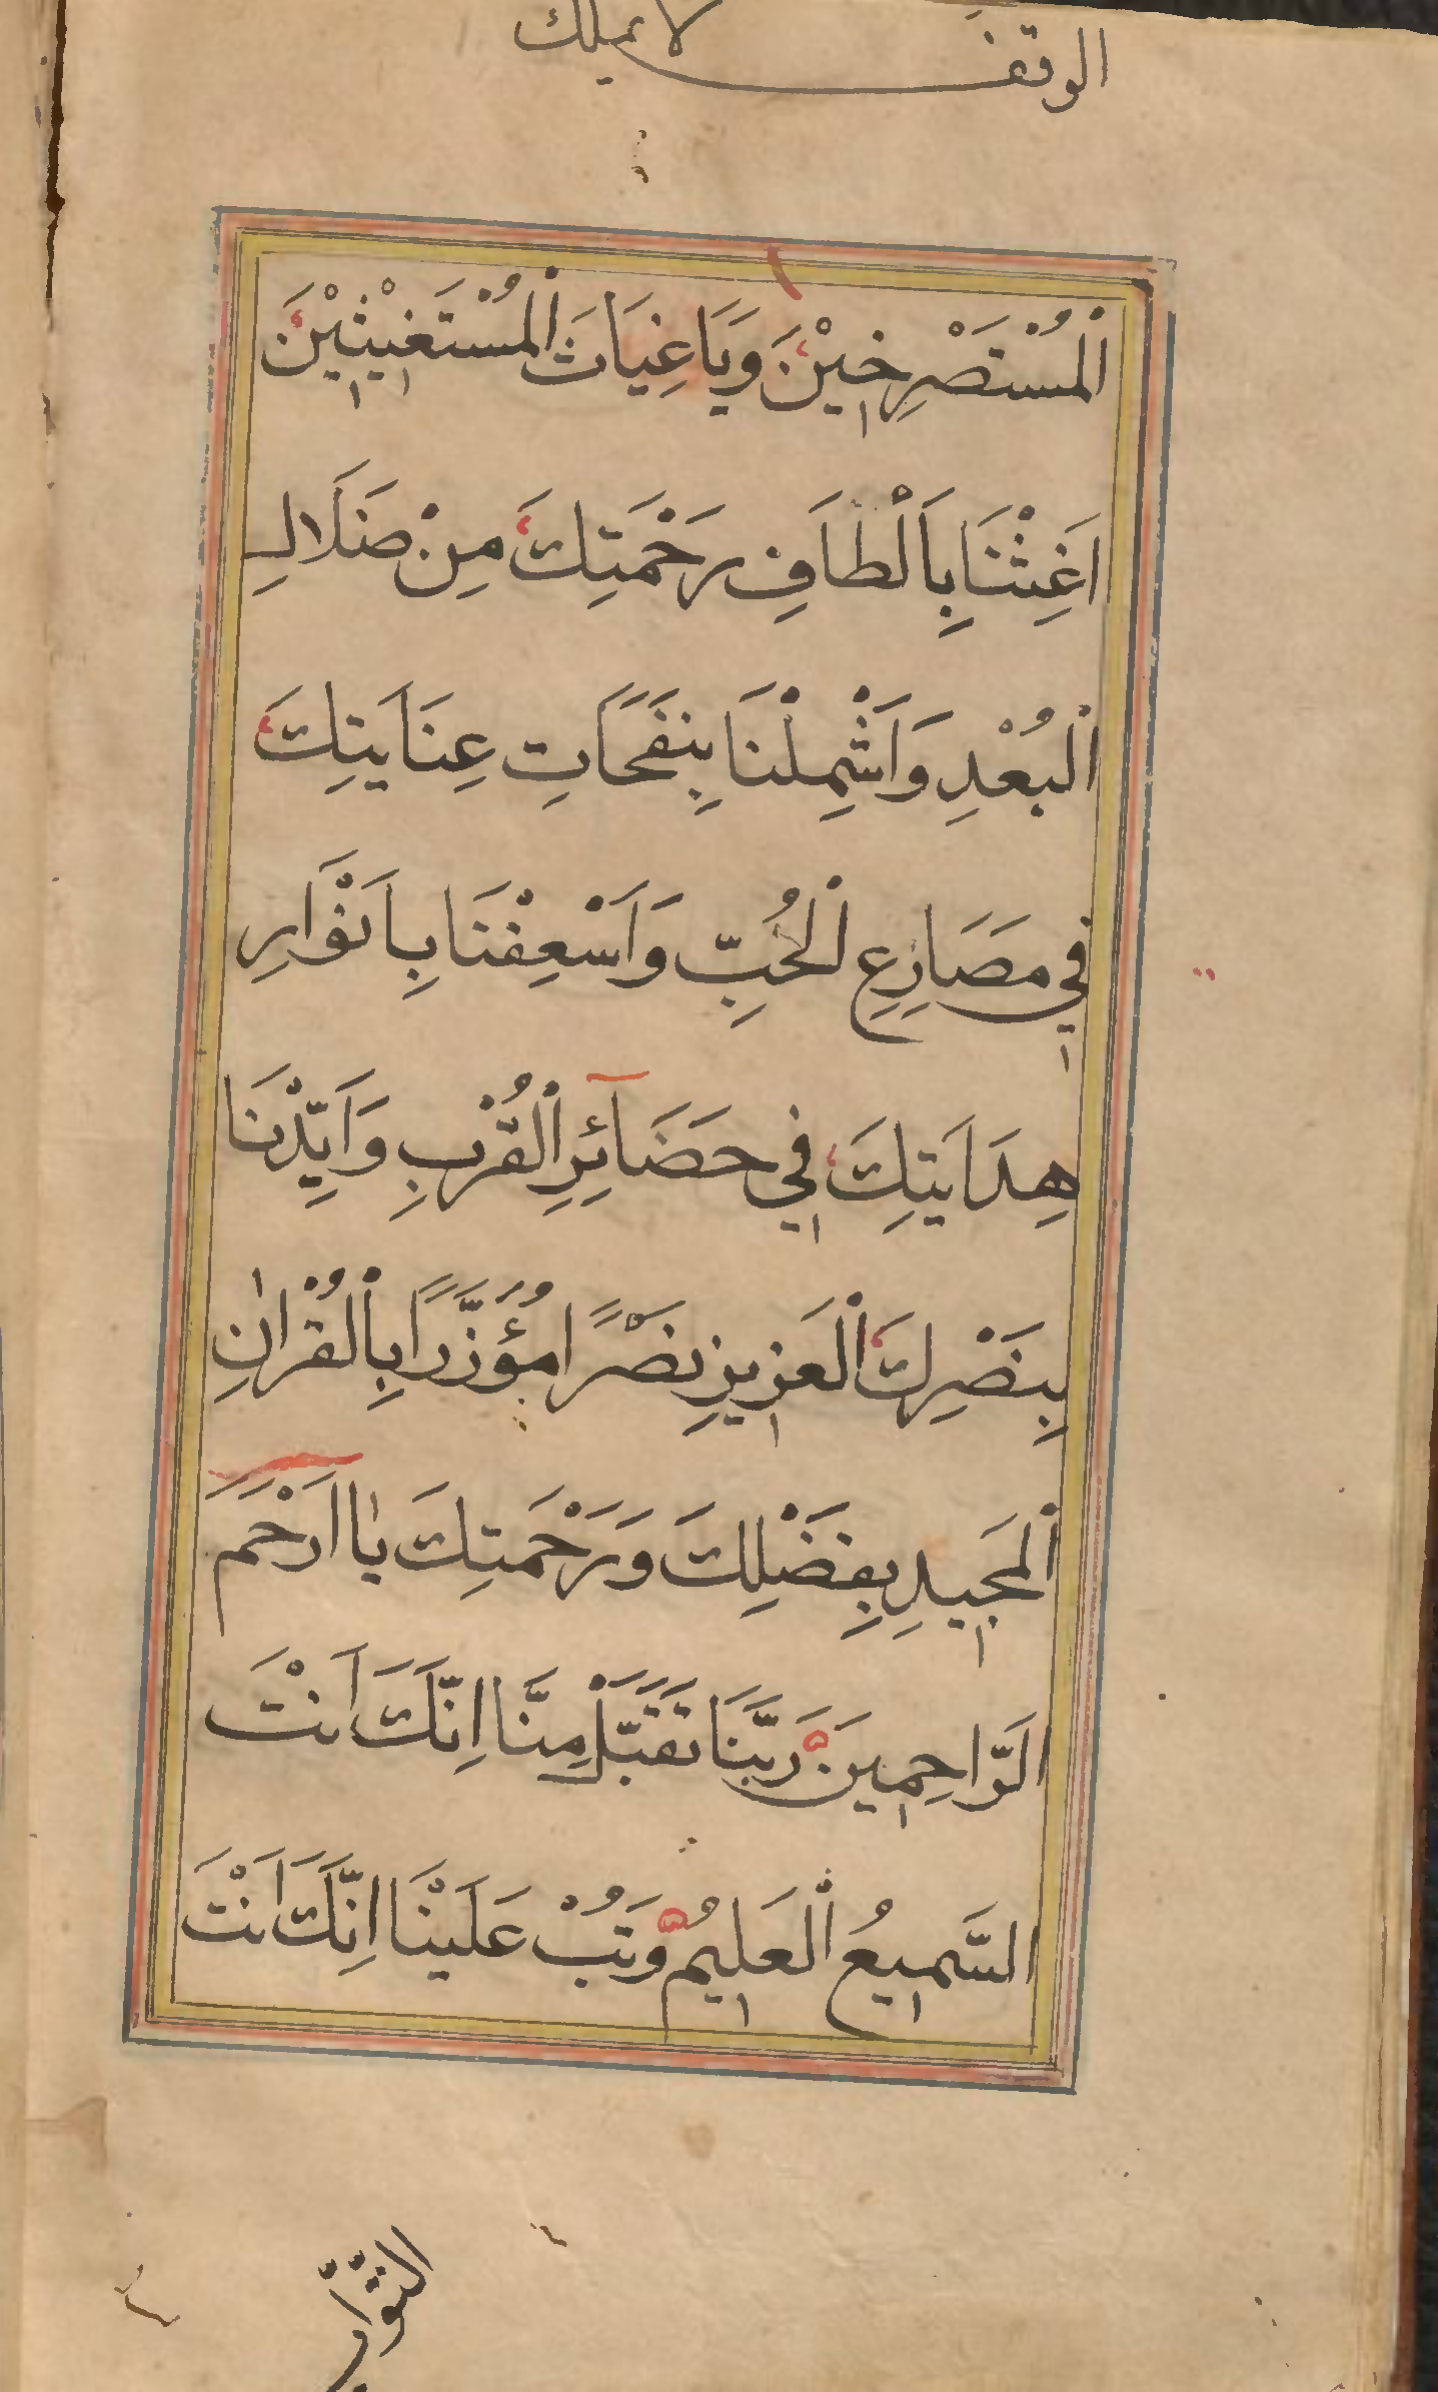 الوقف لا يملك
الْمُسْتَصْرِخِيْنَ وَيَا غِيَاثَ الْمُسْتَغِيْثِيْنَ
اَغِثْنَا بِاَلْطَافِ رَحْمَتِكَ مِنْ ضَلَالِ
الْبُعْدِ وَاَشْمِلْنَا بِنَفَحَاتِ عِنَايَتِكَ
فِي مَصَارِعِ الْحُبِّ وَاَسْعِفْنَا بِاَنْوَارِ
هِدَايَتِكَ فِي حَضَائِرِ الْقُرْبِ وَاَيِّدْنَا
بِنَصْرِكَ الْعَزِيزِ نَصْرًا مُؤَزَّرًا بِالْقُرْاٰنِ
الْمَجِيدِ بِفَضْلِكَ وَرَحْمَتِكَ يٰا اَرْحَمَ
الرَّاحِمِينَ رَبَّنَا تَقَبَّلْ مِنَّا اِنَّكَ اَنْتَ
السَّمِيعُ الْعَلِيمُ وَتُبْ عَلَيْنَا اِنَّكَ اَنْتَ
التَّوَّابُ